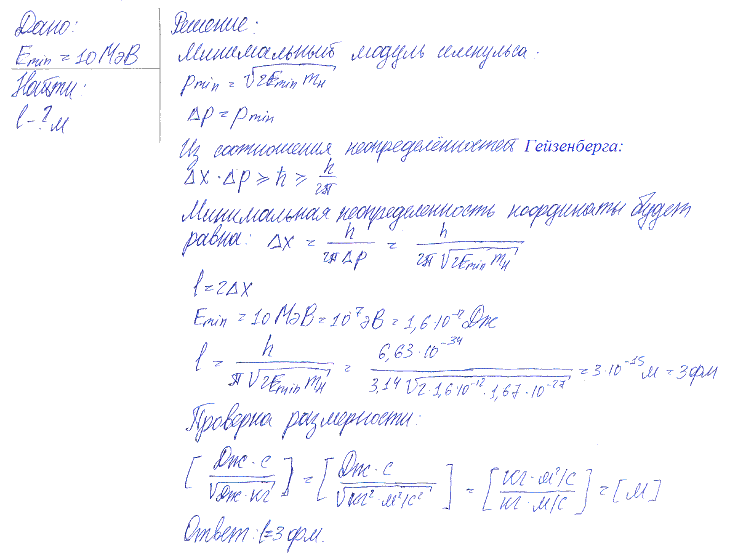 Дано:
E_min = 10 МэВ
Найти:
l - ? м
Решение:
Минимальный модуль импульса:
p_min = √(2E_min m_н)
Δp = p_min
Из соотношения неопределённостей Гейзенберга:
Δx · Δp ≥ ħ ≥ h/2π
Минимальная неопределенность координаты будет
равна: Δx = h/(2πΔp) = h/(2π√(2E_min m_н))
l = 2Δx
E_min = 10 МэВ = 10⁷ эВ = 1,6·10⁻¹² Дж
l = h/(π√(2E_min m_н)) = 6,63·10⁻³⁴/(3,14√(2·1,6·10⁻¹²·1,67·10⁻²⁷)) = 3·10⁻¹⁵ м = 3 фм
Проверка размерности:
[Дж·с/√(Дж·кг)] = [Дж·с/√(кг²·м²/с²)] = [кг·м²/с/(кг·м/с)] = [м]
Ответ: l=3 фм.